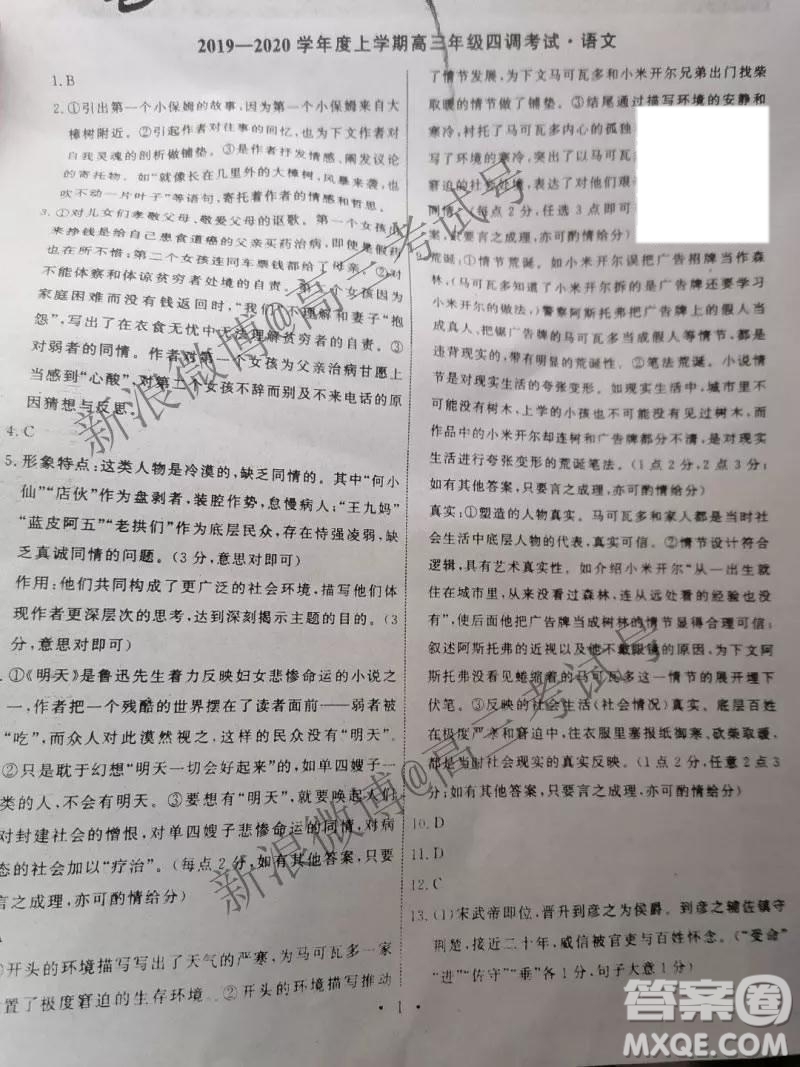 2019—2020 学年度上学期高三年级四调考试·语文
1. B
2. ①引出第一个小保姆的故事，因为第一个小保姆来自大
樟树附近。②引起作者对往事的回忆，也为下文作者对
自我灵魂的剖析做铺垫。③是作者抒发情感、阐发议论
的寄托物。如“就像长在几里外的大樟树，风暴来袭，也
吹不动一片叶子”等语句，寄托着作者的情感和哲思。
3. ①对儿女们孝敬父母，敬爱父母的讴歌。第一个女孩小
来挣钱是给自己患食道癌的父亲买药治病，即使卖身也
在所不惜；第二个女孩连同车票钱都给了母亲。②对
不能体察和体谅贫穷者处境的自责。第一个女孩因为
家庭困难而没有钱返回时，“我们”不理解和妻子“抱
怨”，写出了在衣食无忧中无法理解贫穷者的自责。③
对弱者的同情。作者对第一个女孩为父亲治病甘愿上
当感到“心酸”，对第二个女孩不辞而别及不来电话的原
因猜想与反思。
4. C
5. 形象特点：这类人物是冷漠的，缺乏同情的。其中“何小
仙”“店伙”作为盘剥者，装腔作势，怠慢病人；“王九妈”
“蓝皮阿五”“老拱们”作为底层民众，存在恃强凌弱、缺
乏真诚同情的问题。(3分，意思对即可)
作用：他们共同构成了更广泛的社会环境，描写他们体
现作者更深层次的思考，达到深刻揭示主题的目的。(3
分，意思对即可)
. ①《明天》是鲁迅先生着力反映妇女悲惨命运的小说之
一，作者把一个残酷的世界摆在了读者面前——弱者被
“吃”，而众人对此漠然视之，这样的民众没有“明天”。
②只是耽于幻想“明天一切会好起来”的，如单四嫂子一
类的人，不会有明天。③要想有“明天”，就要唤起人们
对封建社会的憎恨，对单四嫂子悲惨命运的同情，对病
态的社会加以“疗治”。(每点2分，如有其他答案，只要
言之成理，亦可酌情给分)
A
①开头的环境描写写出了天气的严寒，为马可瓦多一家
置了极度窘迫的生存环境。②开头的环境描写推动
了情节发展，为下文马可瓦多和小米开尔兄弟出门找柴
取暖的情节做了铺垫。③结尾通过描写环境的安静和
寒冷，衬托了马可瓦多内心的孤独
写了环境的寒冷，突出了以马可瓦
窘迫的社会处境，表达了对他们艰
同情。(每点2分，任选3点即可
只要言之成理，亦可酌情给分)
荒诞：①情节荒诞。如小米开尔误把广告招牌当作森
林，(马可瓦多知道了小米开尔拆的是广告牌还要学习
小米开尔的做法，)警察阿斯托弗把广告牌上的假人当
成真人、把锯广告牌的马可瓦多当成假人等情节，都是
违背现实的，带有明显的荒诞性。②笔法荒诞。小说情
节充满了对现实生活的夸张变形。如作品中，城市里不
可能没有树木，上学的小孩也不可能没有见过树木，而
作品中的小米开尔却连树和广告牌都分不清，是对现实
进行夸张变形的荒诞笔法。(1点2分，2点3分；
如有其他答案，只要言之成理，亦可酌情给分)
真实：①塑造的人物真实。马可瓦多和家人都是当时社
会生活中底层人物的代表，真实可信。②情节设计符合
逻辑，具有艺术真实性。如介绍小米开尔“从一出生就
生活在城市里，从来没看过森林，连从远处看的经验也没
有”，使后面他把广告牌当成树林的情节显得合情合理；
叙述阿斯托弗的近视以及他不戴眼镜的原因，为下文阿
斯托弗没看见蜷缩着的马可瓦多等情节的展开埋下
伏笔。③反映的社会生活(社会情况)真实。底层百姓
在极度严寒和窘迫中，往衣服里塞报纸御寒、砍柴取暖，
都是当时社会现实的真实反映。(1点2分，任意2点3
分；如有其他答案，只要言之成理，亦可酌情给分)
10. D
11. D
12. C
13. (1)宋武帝即位，晋升到彦之为侯爵。到彦之辅佐镇守
荆楚，接近二十年，威信被官吏与百姓怀念。(“受命”
“进”“佐守”“垂”各1分，句子大意1分)
· 1 ·
新浪微博@高三考试号
新浪微博@高三考试号
答案圈
MXQE.COM